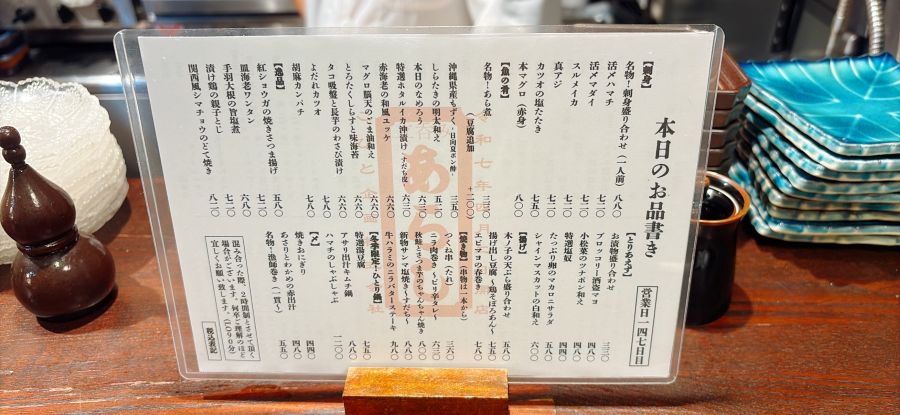 本日のお品書き
営業日一四七日目
【刺身】
名物！刺身盛り合わせ（一人前） 八八〇
活〆ハマチ
活〆マダイ
スルメイカ
真アジ
カツオの塩たたき 七五〇
本マグロ（赤身） 八二〇
【魚の肴】
名物！あら煮 三三〇
（豆腐追加 +二〇〇）
沖縄県産もずく 三五〇
しらたきの明太和え 五二〇
本日のなめろう 六三〇
特選ホタルイカ沖漬け 六六〇
赤海老の和風ユッケ
マグロ脳天のごま油和え 六六〇
とろたくしらすと味海苔 六六〇
タコ吸盤と長芋のわさび漬け
よだれカツオ 七八〇
胡麻カンパチ
【逸品】
紅ショウガの焼きさつま揚げ 五八〇
皿海老ワンタン 六八〇
手羽大根の旨塩煮 七二〇
漬け鶏の親子とじ 七二〇
関西風シマチョウのとて焼き 八二〇
【とりあえず】
お漬物盛り合わせ 三三〇
ブロッコリー酒盗マヨ 四八〇
小松菜のツナポン和え 四八〇
特選塩奴 四四〇
たっぷり卵のマカロニサラダ 五五〇
シャインマスカットの白和え 六〇〇
【揚げ】
木ノ子の天ぷら盛り合わせ 五八〇
揚げ出し豆腐〜鶏そぼろあん〜
エビマヨの春巻き 七八〇
【焼き物】（串物は一本から）
つくね串（たれ） 三六〇
ニラ肉巻き〜ピリ辛タレ〜
秋鮭とさつま芋のちゃんちゃん焼き
新物サンマ塩焼き〜すだち〜
牛ハラミのニラバターステーキ 九八〇
【冬季限定！ひとり鍋】
特選湯豆腐 七五〇
アサリ出汁キムチ鍋 八八〇
ハマチのしゃぶしゃぶ 一二〇〇
【〆】
焼きおにぎり 四四〇
あさりとわかめの赤出汁 四八〇
名物！漁師巻き（一貫〜） 五五〇
混み合った際、2時間制とさせて頂く
場合がございます。何卒ご理解のほど
宜しくお願い致します。（LO90分）
税込表記